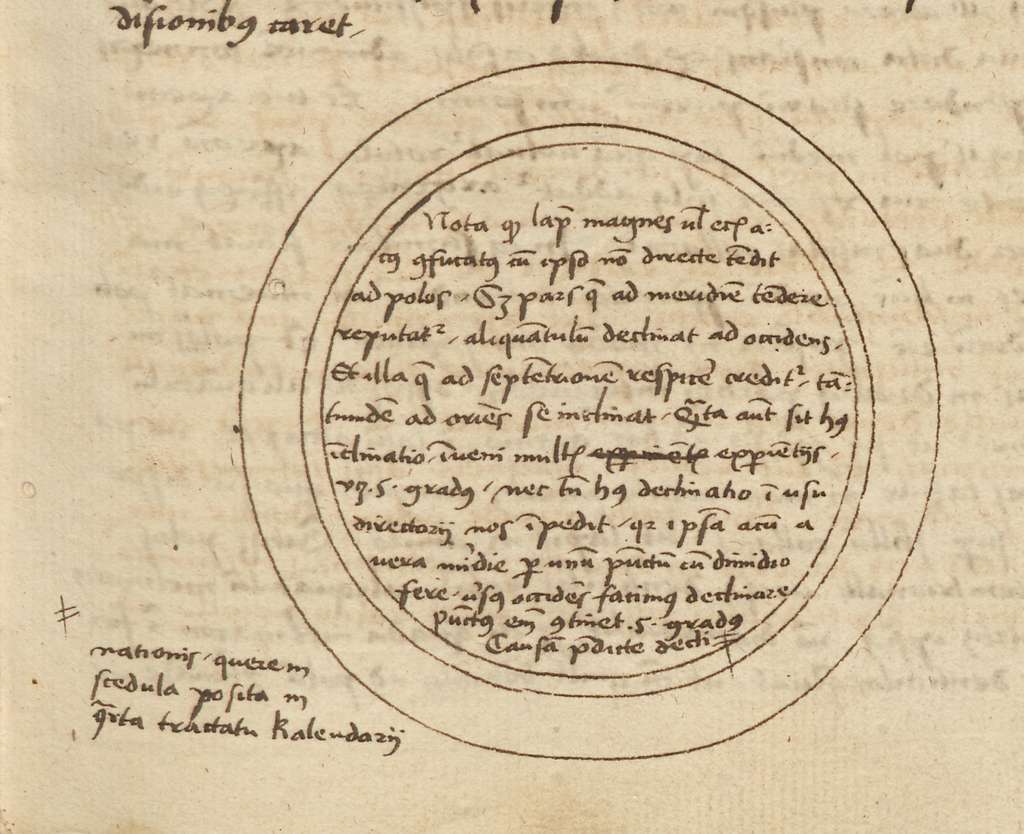 disionibꝰ caret
Nota qꝫ lap̄ magnes ul̄ eciā a=
cꝰ ꝯfricatꝰ cū ipso nō directe tēdit
ad polos Sꝫ pars q̄ ad meridiē tēdere
reputatʳ, aliquātulū declinat ad occidens,
Et illa q̄ ad septētrionē respicē creditʳ, tā=
tundē ad oriēs se inclinat, Q̄ta aūt sit hꝰ
īclinatio, īveni multꝭ exꝑiētijs,
vꝫ .5. gradꝰ, nec tn̄ hꝰ declinatio ī usu
directorij nos īpedit, qꝛ ipsā acū a
vera mīdie ꝑ unū pūctū cū dimidio
fere, ūsꝰ occidēs facimꝰ declinare
Pūctꝰ em̄ ꝯtinet .5. gradꝰ
Causā p̄dicte decli
nationis, quere in
scedula posita in
q̄rta tractatu Kalendarij